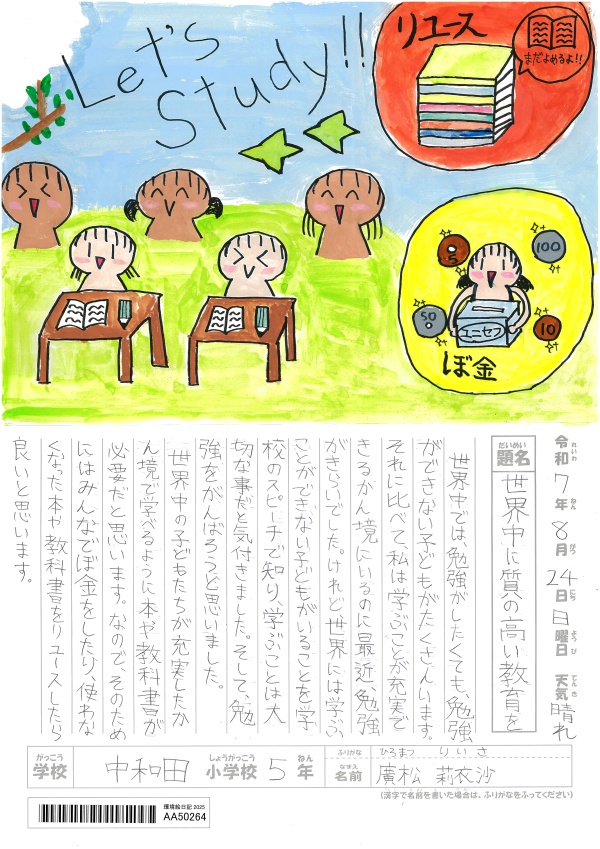 Let's
Study!!
リユース
まだよめるよ!!
5
100
50
10
ユニセフ
ぼ金
令和7年8月24日日曜日 天気 晴れ
れいわ ねん がつ にち ようび てんき
だいめい
題名
世界中に質の高い教育を
世界中では、勉強がしたくても、勉強
ができない子どもがたくさんいます。
それに比べて、私は学ぶことが充実で
きるかん境にいるのに最近、勉強
がきらいでした。けれど世界には学ぶ
ことができない子どもがいることを学
校のスピーチで知り、学ぶことは大
切な事だと気付きました。そして、勉
強をがんばろうと思いました。
世界中の子どもたちが充実したか
ん境で学べるように本や教科書が
必要だと思います。なので、そのため
にはみんなでぼ金をしたり、使わな
くなった本や教科書をリユースしたら
良いと思います。
がっこう しょうがっこう ねん
学校 中和田 小学校 5年
ふりがな ひろまつ りいさ
なまえ
名前 廣松 莉衣沙
(漢字で名前を書いた場合は、ふりがなをふってください)
環境絵日記 2025
AA50264